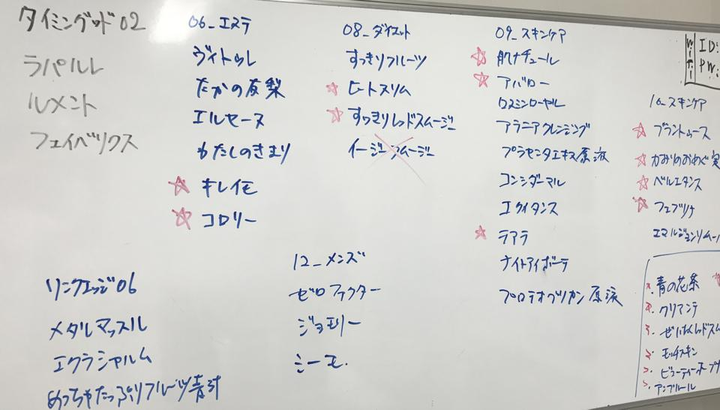 タイミングッド02
ラパルレ
ルメント
フェイベリクス
06_エステ
ヴィトゥレ
たかの友梨
エルセーヌ
わたしのきまり
☆キレイモ
☆コロリー
08_ダイエット
すっきりフルーツ
☆ヒートスリム
☆すっきりレッドスムージー
イージースムージー
09_スキンケア
☆肌ナチュール
☆アバロー
ロスミンローヤル
アラニアクレンジング
プラセンタエキス原液
コンシダーマル
エクイタンス
☆テアテ
ナイトアイボーテ
プロテオグリカン原液
ID:
PW:
10_スキンケア
☆プラントムース
☆かおりめぐ実
☆ベルエタンス
☆フェブリナ
エマルジョンリムー
青の花茶
クリアンテ
ぜいたくレッドス
モッチスキン
ビューティーオープナ
アンプルール
リンクエッジ06
メタルマッスル
エクラシャルム
めっちゃたっぷりフルーツ青汁
12_メンズ
ゼロファクター
ジョモリー
シーモ.